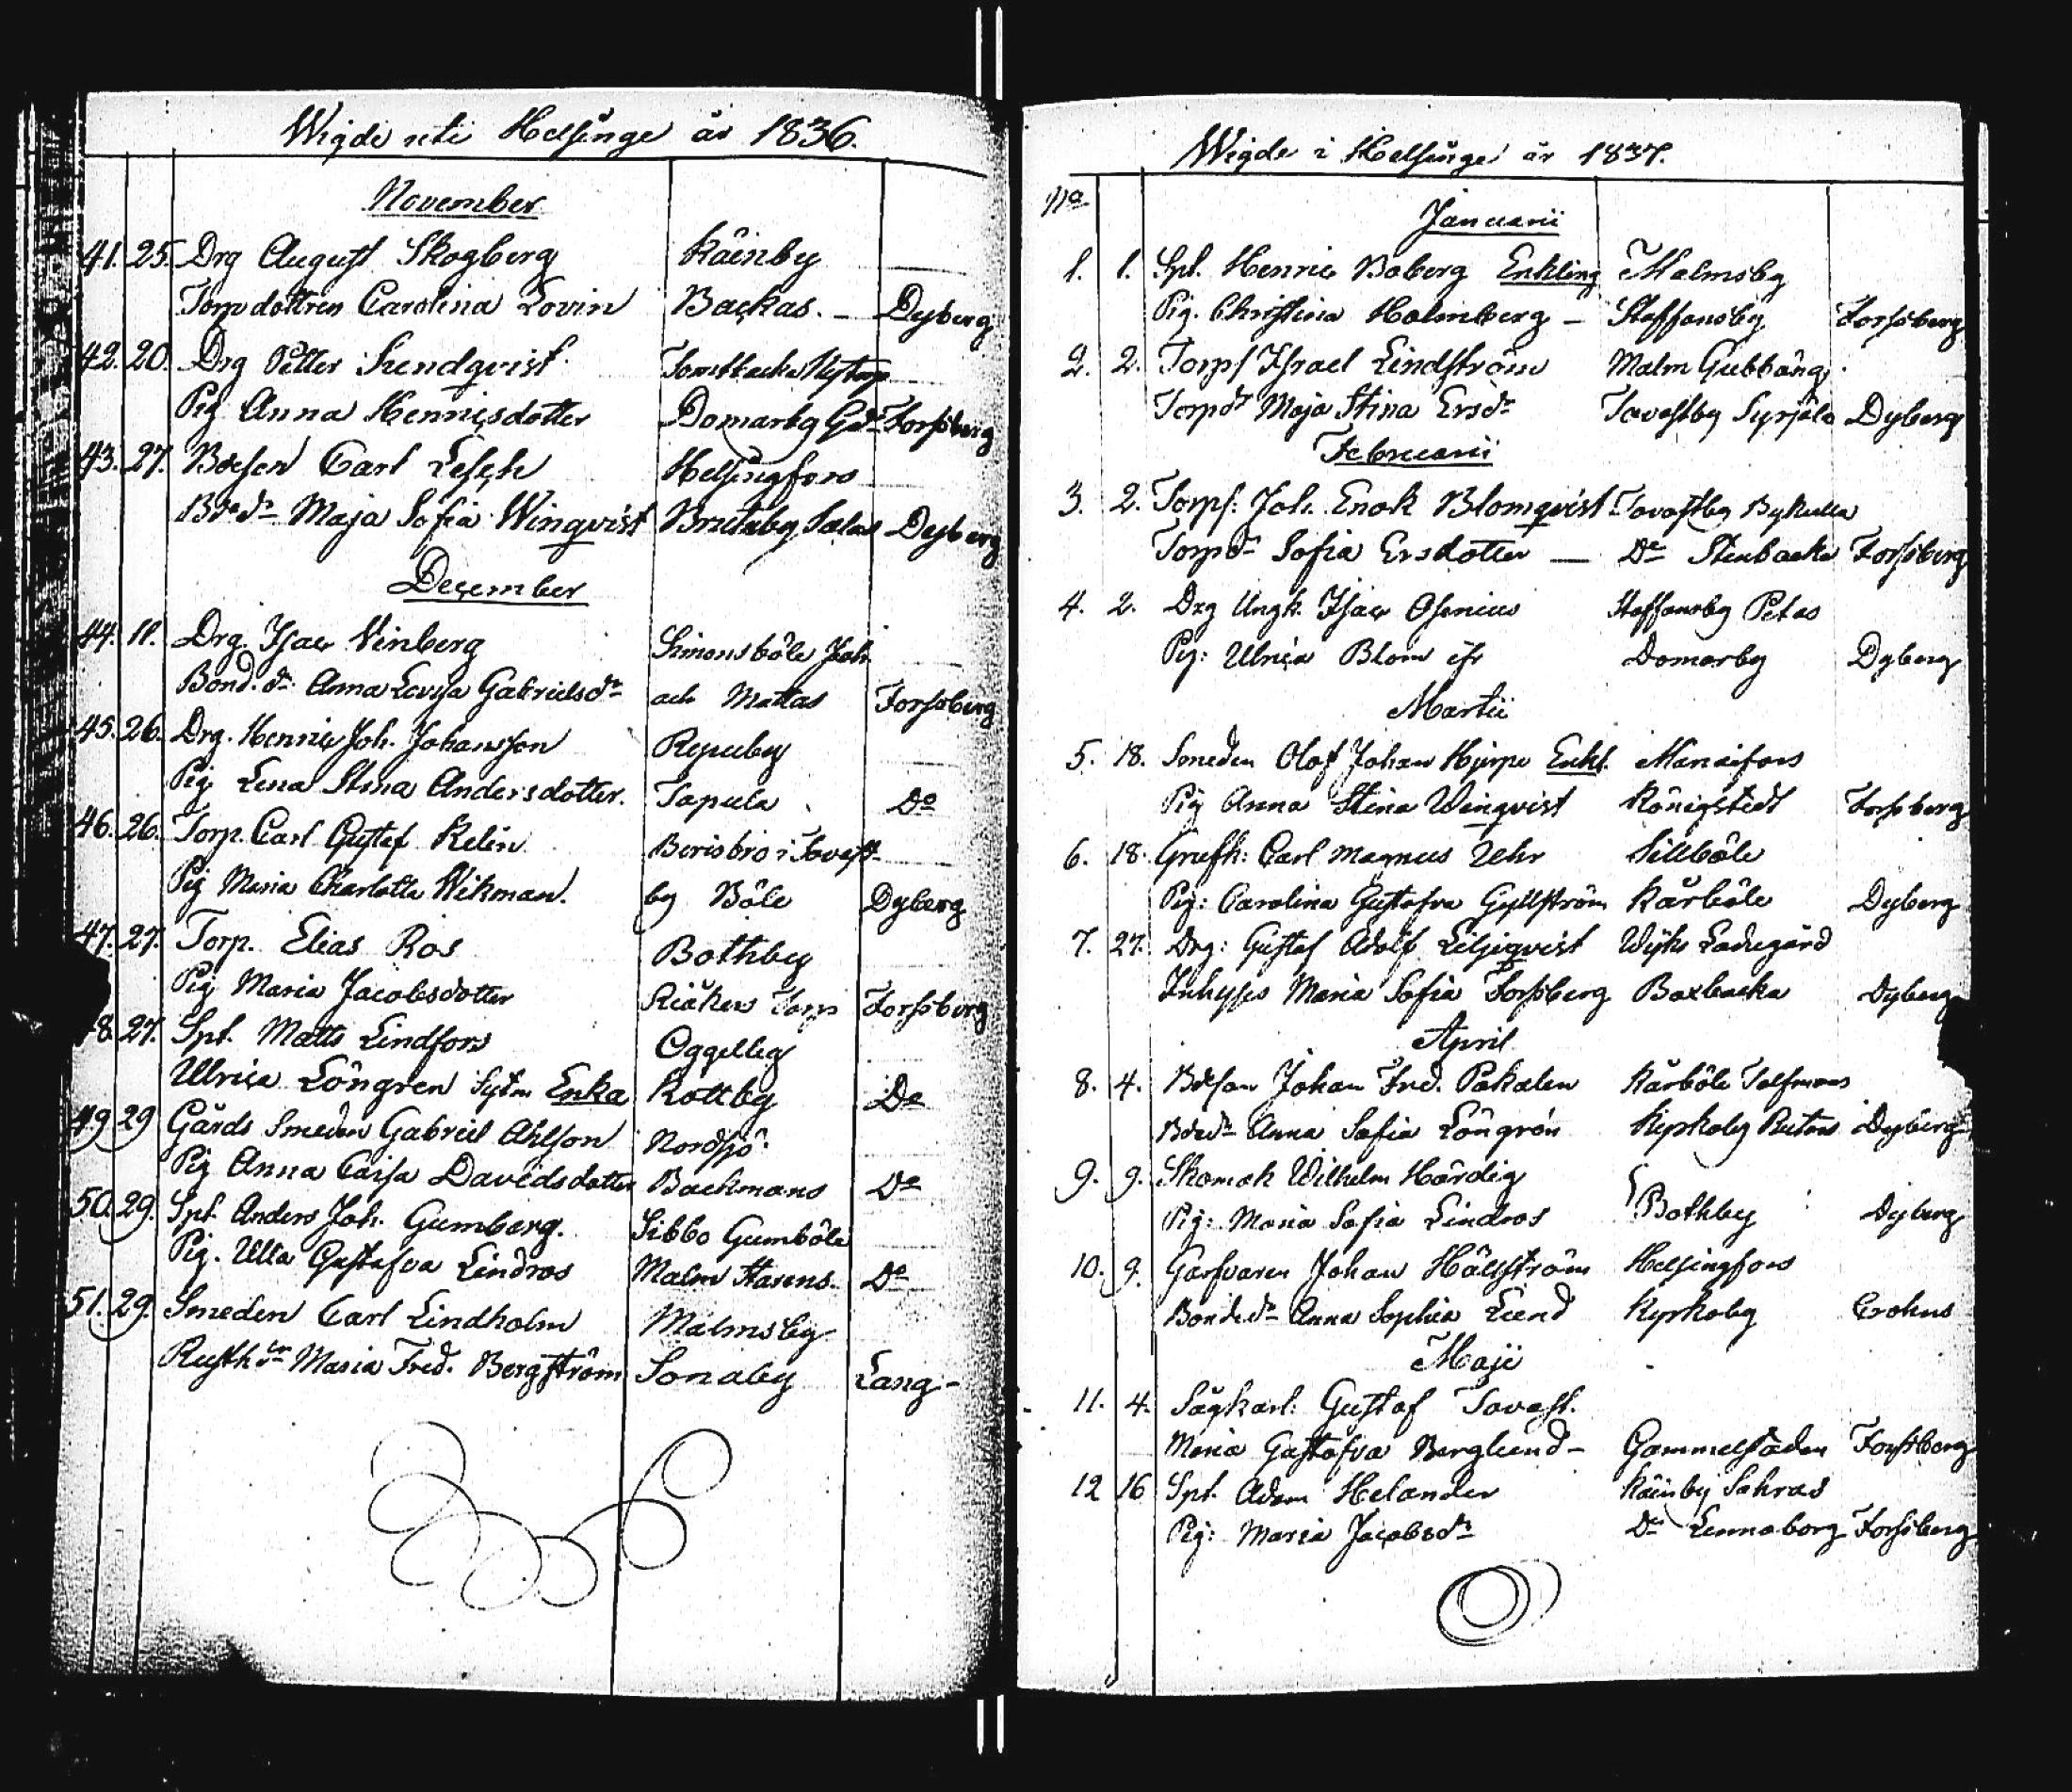 Wigde uti Helsinge år 1836.
November
41. 25. Drg August Skogberg Råinby
Torpdottren Carolina Lovin Backas. – Dyberg
42. 20. Drg Petter Sundqvist Tomtbacka
Pig Anna Henricsdotter Domarby Forssberg
43. 27. Bdeson Carl Lesch Helsingfors
Bdedr Maja Sofia Winqvist Brutuby Dyberg
December
44. 11. Drg. Isac Vinberg Simonsböle Joh.
Bond. dr Anna Lovisa Gabrielsdr och Mattas Forssberg
45. 26. Drg. Henric Joh. Johansson Repuby
Pig Lena Stina Andersdotter. Tapula Do
46. 26. Torp. Carl Gustef Relin Borisbro i Tavast-
Pig Maria Charlotta Wikman. by Böle Dyberg
47. 27. Torp. Elias Ros Bothby
Pig Maria Jacobsdotter Torp Forssberg
48. 27. Spt. Matts Lindfors Oggelby
Ulrica Löngren Sytm Enka Rottby Do
49 29 Gårds Smeden Gabriel Ahlson Nordsjö
Pig Anna Caisa Davidsdotter Backmans Do
50. 29. Spt. Anders Joh. Gumberg. Sibbo Gumböle
Pig. Ulla Gustafva Lindros Malm Starens. Do
51. 29. Smeden Carl Lindholm Malmsby
Rusth dr Maria Fred. Bergström Sonaby Lang-
Wigde i Helsinge år 1837.
No
Januarii
1. 1. Spt. Henric Boberg Enkling Malmsby
Pig. Christina Holmberg – Staffansby Forssberg
2. 2. Torps Israel Lindström Malm Gubbäng
Torpdr Maja Stina Ersdr Tavastby Syrjälä Dyberg
Februarii
3. 2. Torps: Joh. Enok Blomqvist Tavastby Bykulla
Torpdr Sofia Ersdotter — Do Stenbacka Forssberg
4. 2. Drg Ungk. Isac Osenius Staffansby Petas
Pig: Ulrica Blom Domarby Dyberg
Martii
5. 18. Smeden Olof Johan Hjerpe Enkl. Mariaefors
Pig Anna Stina Winqvist Königstedt Forssberg
6. 18. Grufk: Carl Magnus Uhr Sillböle
Pig: Carolina Gustafva Gyllström Kårböle Dyberg
7. 27. Drg: Gustaf Adolf Liljeqvist Wiks Ladugård
Inhyses Maria Sofia Forssberg Boxbacka Dyberg
April
8. 4. Bdeson Johan Fred. Pakalen Kårböle Tolfmans
Bdedr Anna Sofia Löngrén Kyrkoby Rutars Dyberg
9. 9. Skomak Wilhelm Härdig
Pig: Maria Sofia Lindros Bothby Dyberg
10. 9. Garfvaren Johan Hällström Helsingfors
Bondedr Anna Sophia Lund Kyrkoby Crohns
Maji
11. 4. Sågkarl: Gustaf Tavast.
Maria Gustafva Berglund – Gammelstaden Forssberg
12 16 Spt. Adam Helander Råinby Sahras
Pig: Maria Jacobsdr Do Lennaborg Forssberg